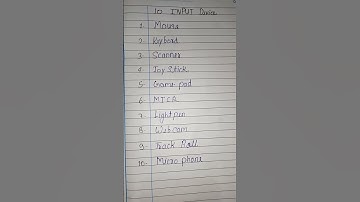 10 INPUT Device
1. Mouse
2. Keyboard
3. Scanner
4. Joy Stick
5. Game pad
6. MICR
7. Light pen
8. Web cam
9. Track Ball
10. Micro phone